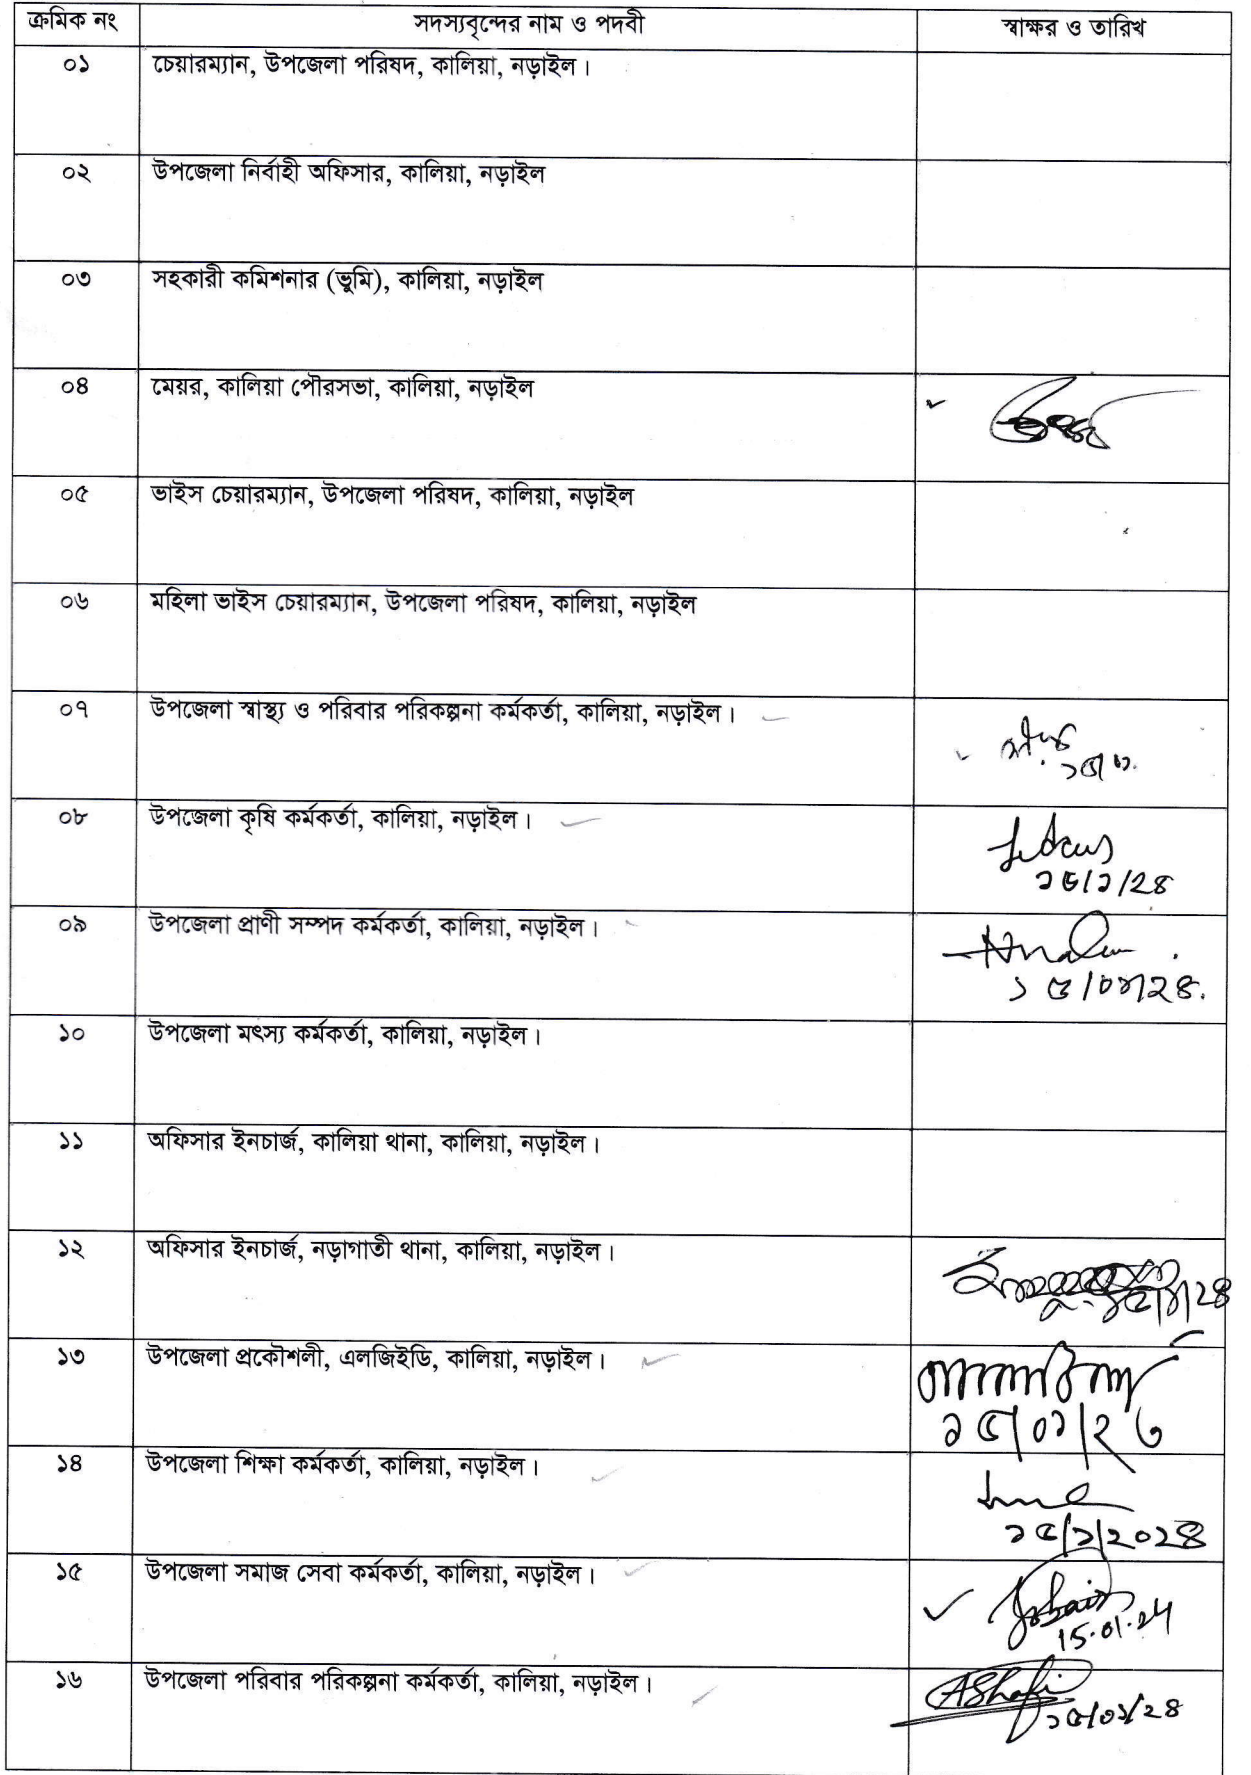 ক্রমিক নং সদস্যবৃন্দের নাম ও পদবী স্বাক্ষর ও তারিখ
০১ চেয়ারম্যান, উপজেলা পরিষদ, কালিয়া, নড়াইল।
০২ উপজেলা নির্বাহী অফিসার, কালিয়া, নড়াইল
০৩ সহকারী কমিশনার (ভুমি), কালিয়া, নড়াইল
০৪ মেয়র, কালিয়া পৌরসভা, কালিয়া, নড়াইল
০৫ ভাইস চেয়ারম্যান, উপজেলা পরিষদ, কালিয়া, নড়াইল
০৬ মহিলা ভাইস চেয়ারম্যান, উপজেলা পরিষদ, কালিয়া, নড়াইল
০৭ উপজেলা স্বাস্থ্য ও পরিবার পরিকল্পনা কর্মকর্তা, কালিয়া, নড়াইল।
০৮ উপজেলা কৃষি কর্মকর্তা, কালিয়া, নড়াইল।
১৫/১/২৪
০৯ উপজেলা প্রাণী সম্পদ কর্মকর্তা, কালিয়া, নড়াইল।
১৫/০১/২৪.
১০ উপজেলা মৎস্য কর্মকর্তা, কালিয়া, নড়াইল।
১১ অফিসার ইনচার্জ, কালিয়া থানা, কালিয়া, নড়াইল।
১২ অফিসার ইনচার্জ, নড়াগাতী থানা, কালিয়া, নড়াইল।
১৩ উপজেলা প্রকৌশলী, এলজিইডি, কালিয়া, নড়াইল।
১৫/০১/২৬
১৪ উপজেলা শিক্ষা কর্মকর্তা, কালিয়া, নড়াইল।
১৫/১/২০২৪
১৫ উপজেলা সমাজ সেবা কর্মকর্তা, কালিয়া, নড়াইল।
15.01.24
১৬ উপজেলা পরিবার পরিকল্পনা কর্মকর্তা, কালিয়া, নড়াইল।
AShafi
১৫/০১/২৪